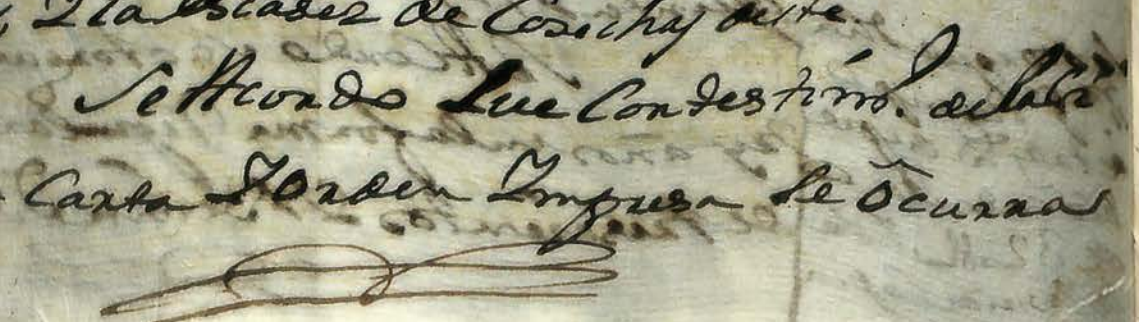 y la escasez de Cosechas deste.
Se Acordo Que Con testimº. de la Ci
Carta Y orden Impresa Se Ocurra